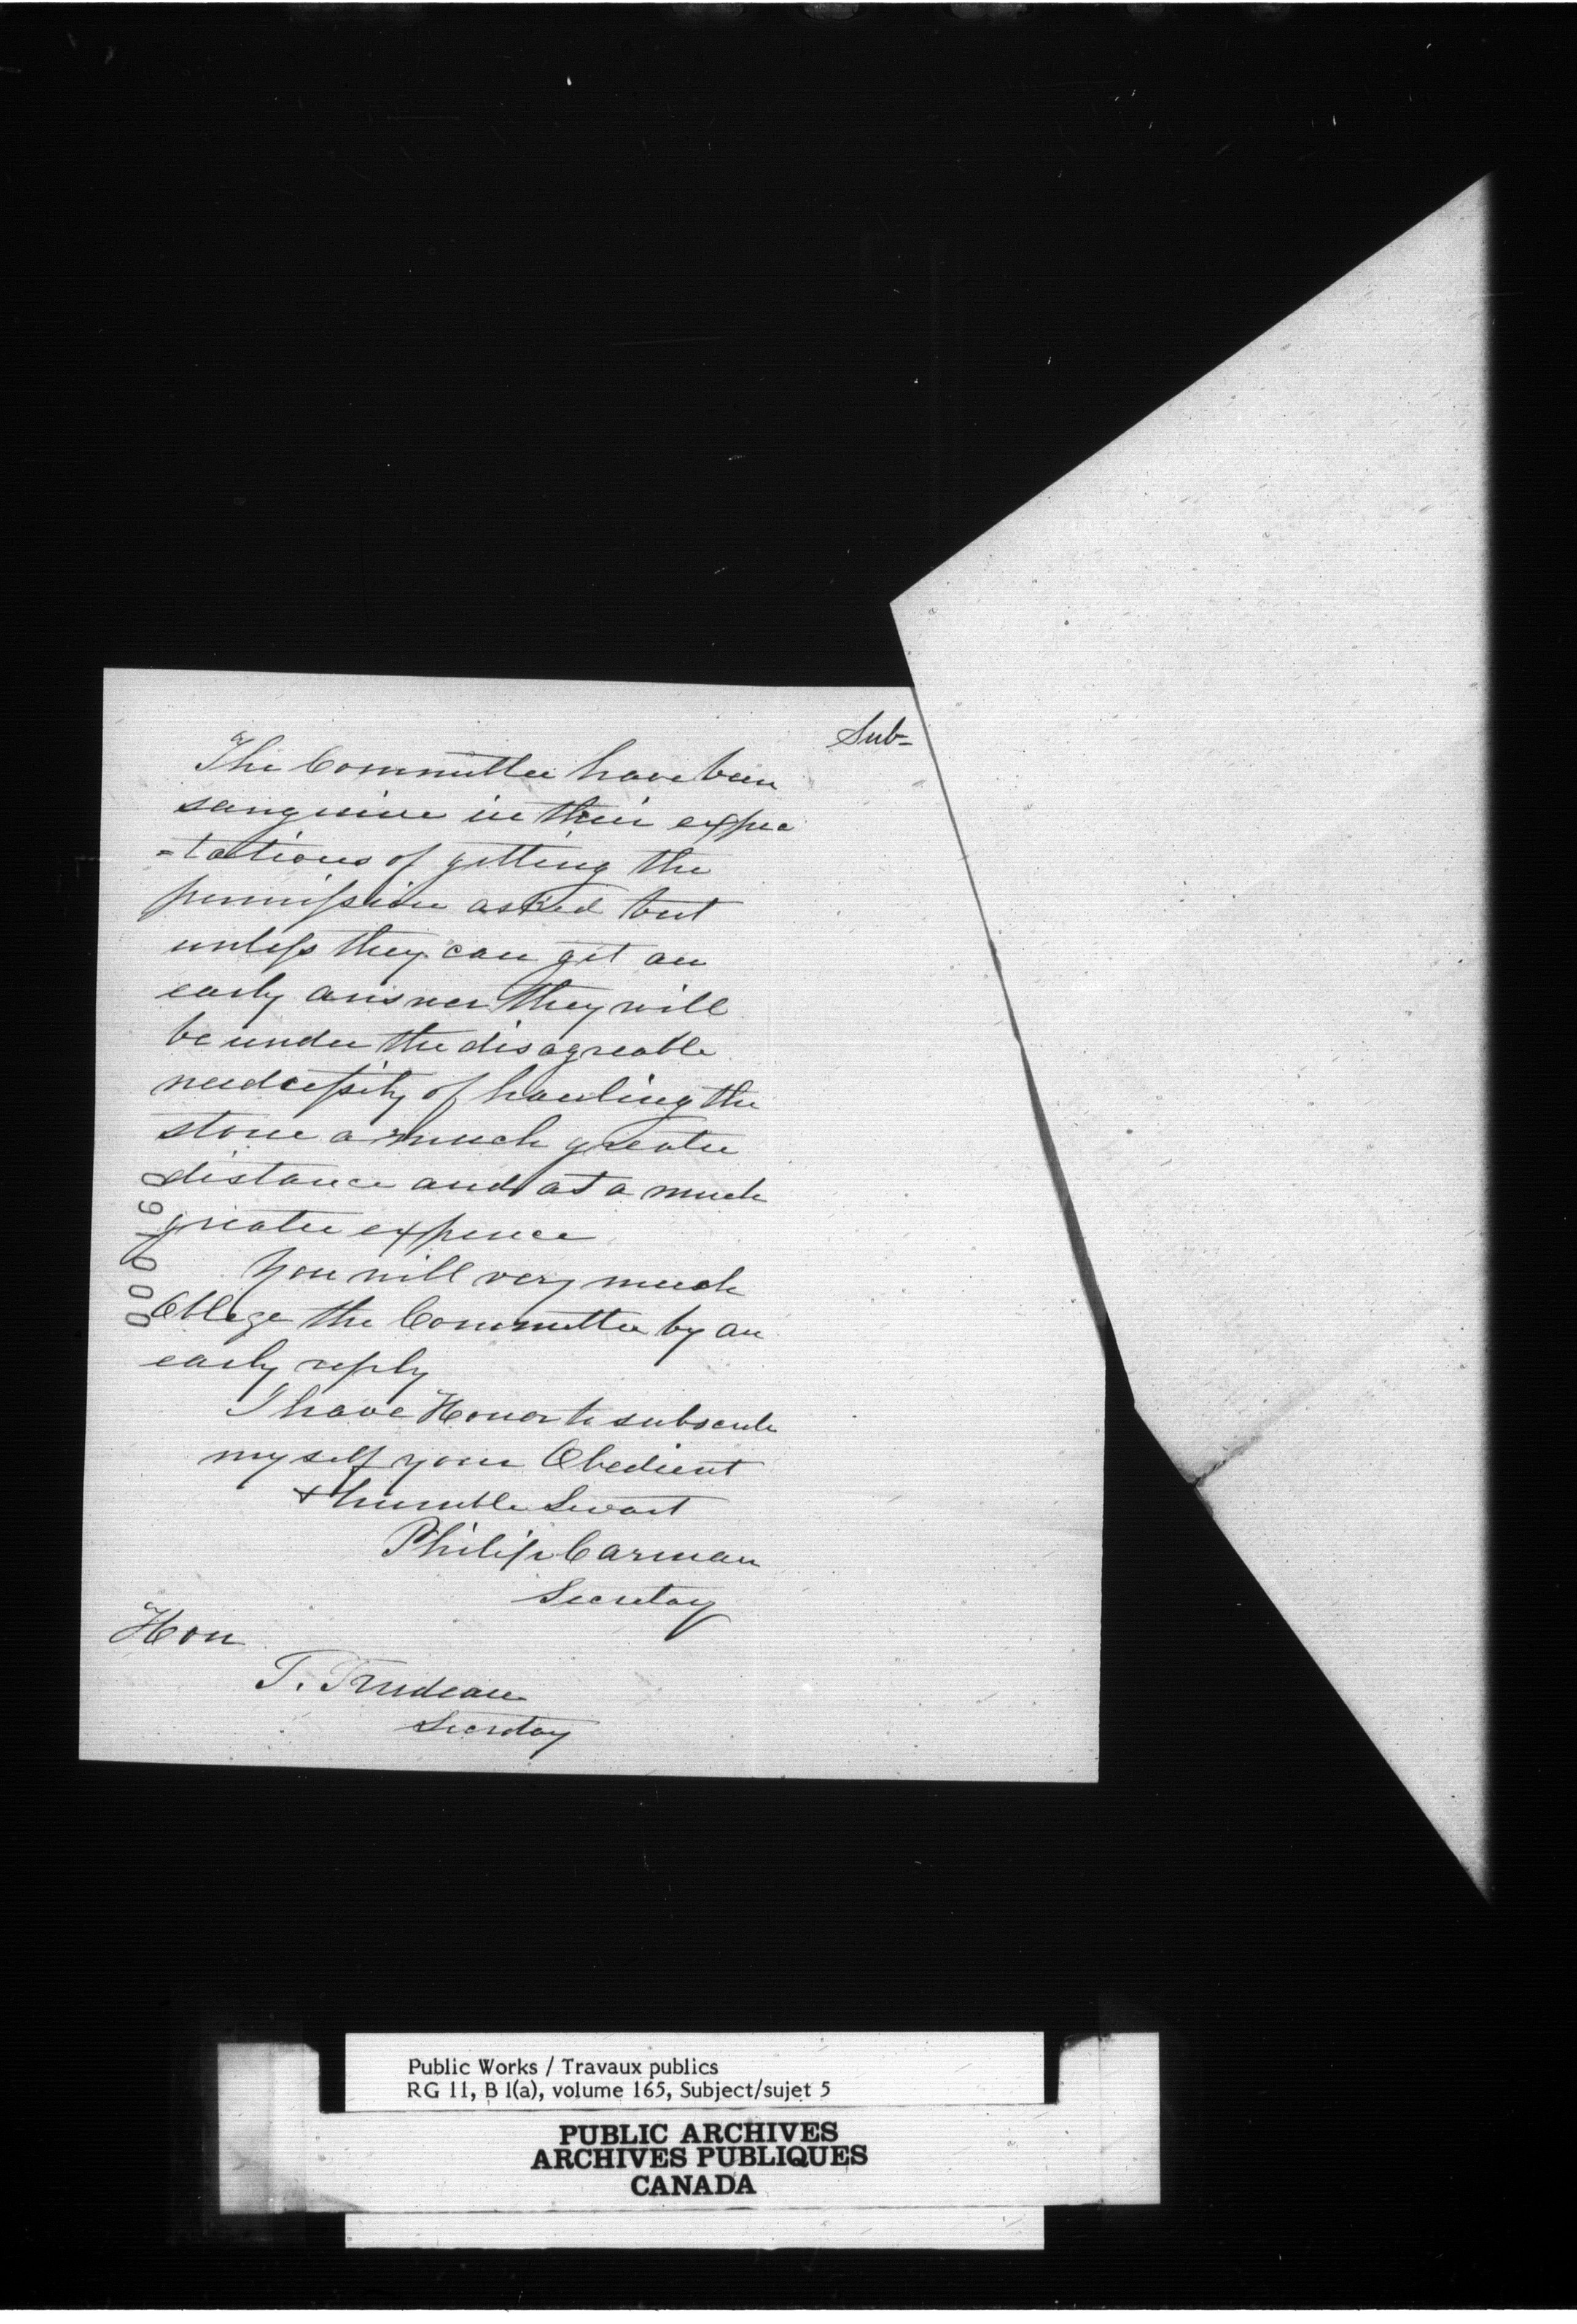 Sub=
The Committee have been
sanguine in their expec
=tations of getting the
permission asked but
unless they can get an
early answer they will
be under the disagreable
needcessity of hauling the
stone a much greater
distance and at a much
greater expence
You will very much
Oblege the Committee by an
early reply
I have Honor to subscribe
myself your Obedient
& humble Servant
Philip Carman
Secretary
Hon
T. Trudeau
Secretary
000160
Public Works / Travaux publics
RG 11, B 1(a), volume 165, Subject/sujet 5
PUBLIC ARCHIVES
ARCHIVES PUBLIQUES
CANADA